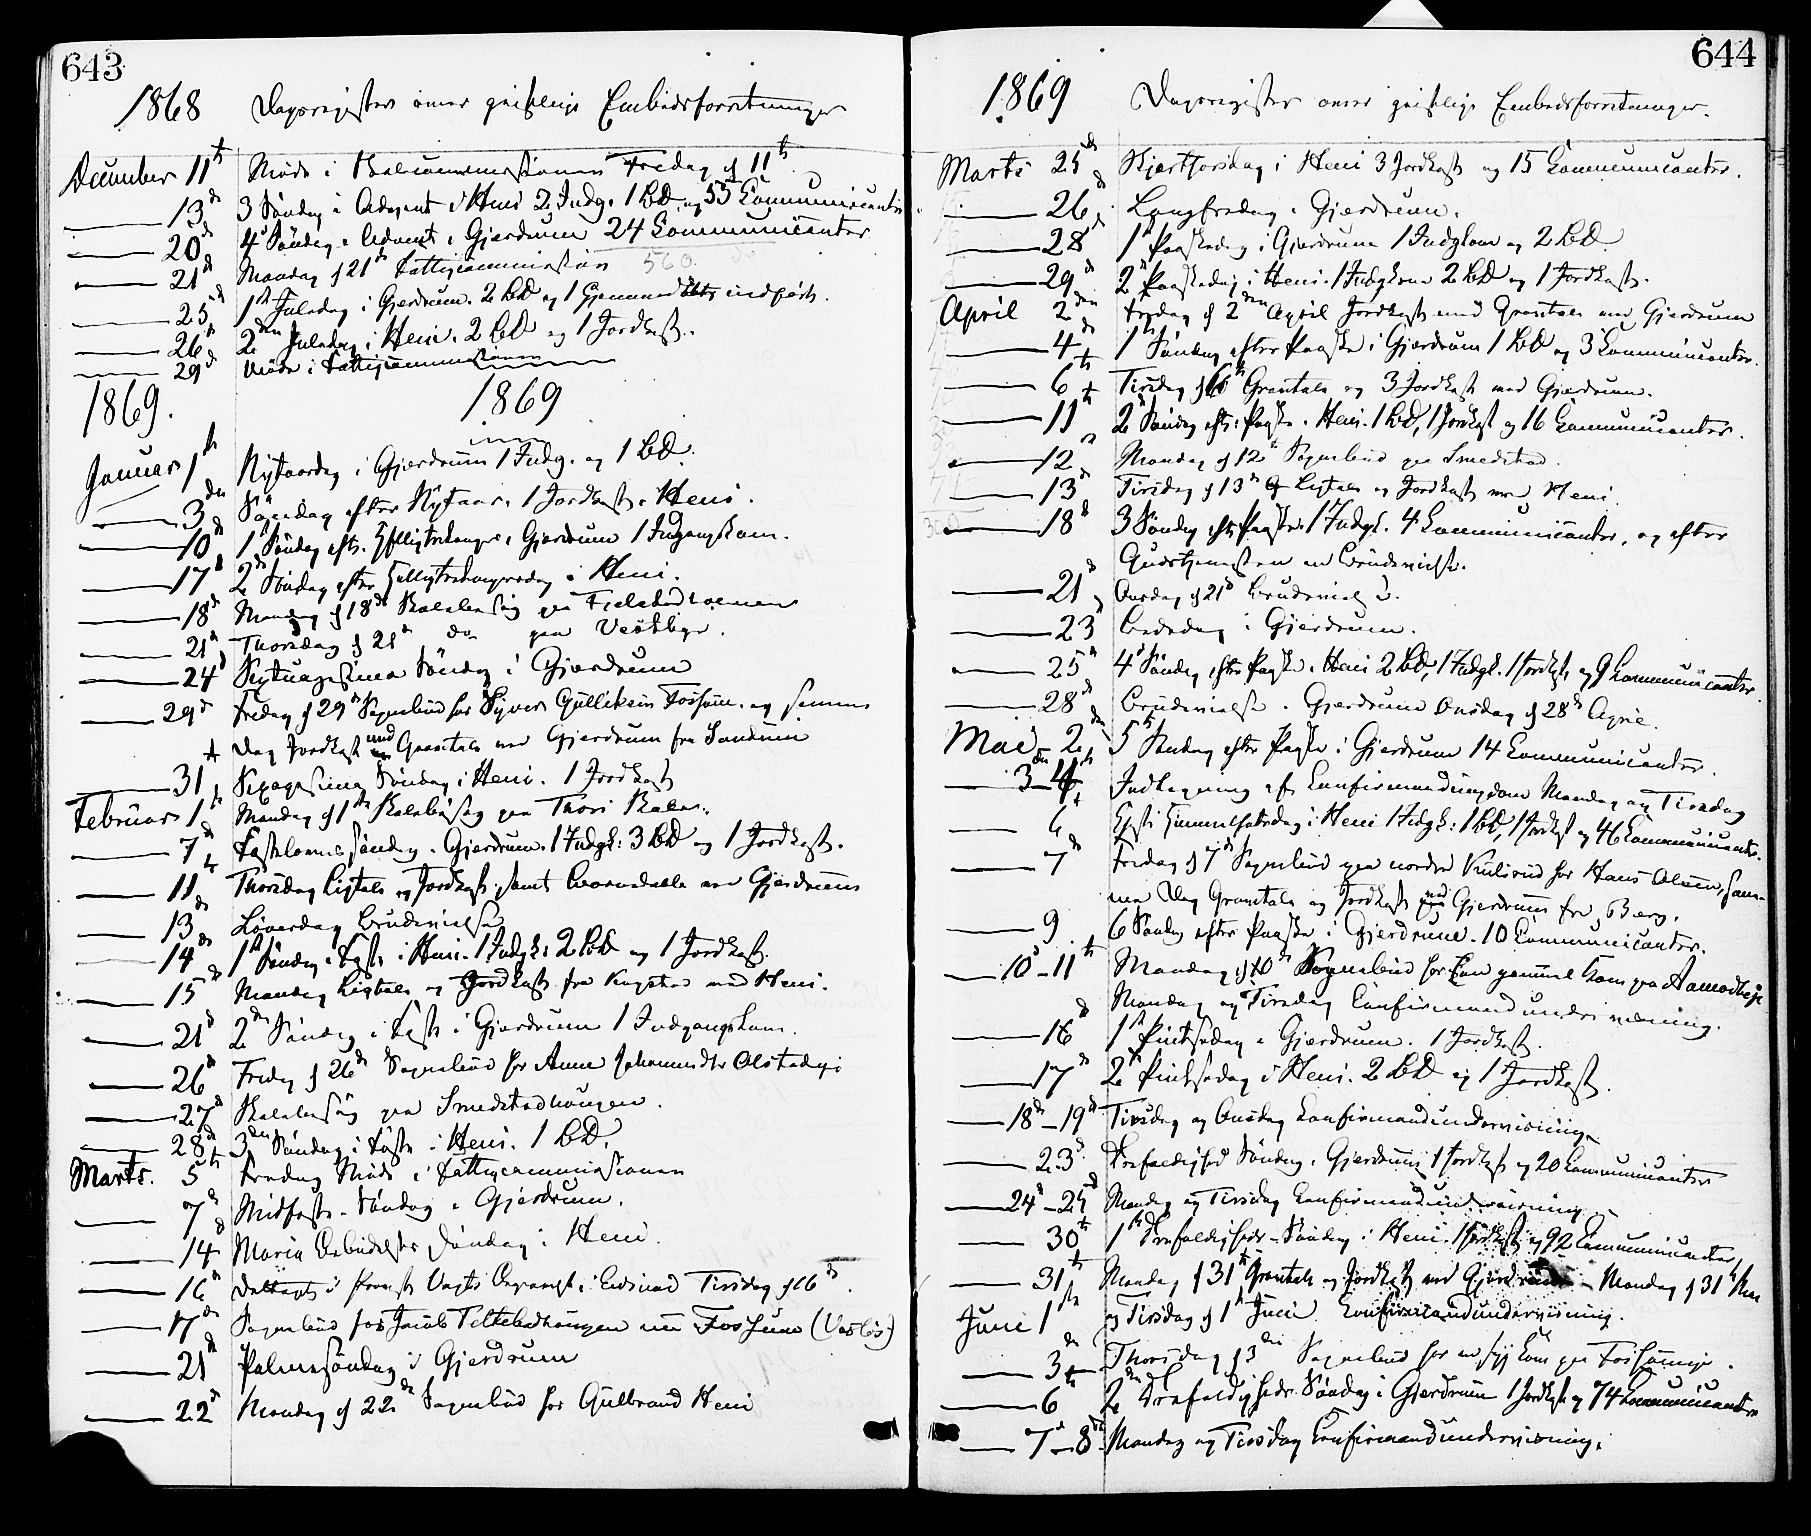 643
1868 Dagsregister over geistlige Embedsforretninger
December 11te Møde i Skolecommissionen Fredag d 11te
13de 3 Søndag i Advent i Heni 2 Indg. 1 BD. og 55 Communicanter
20de 4de Søndag i Advent i Gjerdrum 24 Communicanter
21de Mandag d 21de Fattigcommission 560
25de 1ste Juledag i Gjerdrum. 2 BD og 1 indført.
26te 2den Juledag i Heni. 2 BD og 1 Jordkast.
29de Møde i Fattigcommissionen
1869. 1869
Januar 1ste Nytaarsdag i Gjerdrum 1 Indg. og 1 BD.
3den Søndag efter Nytaar. 1 Jordkast i Heni.
10de 1ste Søndag eft. Helligtrekonger i Gjerdrum 1 Indgangskone.
17de 2den Søndag efter Helligtrekongersdag i Heni.
18de Mandag d 18de Skolebesøg paa
21de Thorsdag d 21de do paa
24de Septuagesima Søndag i Gjerdrum
29de Fredag d 29de Sognebud for Syver Gulliksen Fossum. og samme
Dag Jordkast med Gravtale ved Gjerdrum fra
31te Sexagesima Søndag i Heni. 1 Jordkast
Februar 1ste Mandag d 1ste Skolebesøg paa
7de Fastelavns Søndag i Gjerdrum. 1 Indgk: 3 BD og 1 Jordkast.
11te Thorsdag Ligtale og Jordkast samt ved Gjerdrum
13de Løverdag Brudevielse
14de 1ste Søndag i Faste i Heni. 1 Indgk: 2 BD og 1 Jordkast.
15de Mandag Ligtale og Jordkast fra ved Heni.
21de 2den Søndag i Faste i Gjerdrum 1 Indgangskone.
26de Fredag d 26de Sognebud for Anne Johannesdtr
27de Skolebesøg paa Smedstadhougen.
28de 3den Søndag i Faste i Heni. 1 BD.
Marts. 5te Fredag Møde i Fattigcommissionen
7de Midfaste-Søndag i Gjerdrum.
14de Maria Bebudelses Søndag i Heni.
16de Deltaget i Provst Vogts Begravelse i Eidsvold Tirsdag d 16de
17de Sognebud for Jacob Fossum
21de Palmesøndag i Gjerdrum
22de Mandag d 22de Sognebud for Gulbrand Heni
644
1869 Dagsregister over geistlige Embedsforretninger.
Marts 25de Skjertorsdag i Heni 3 Jordkast og 15 Communicanter.
26de Langfredag i Gjerdrum.
28de 1ste Paaskedag i Gjerdrum 1 Indgkone og 2 BD.
29de 2den Paaskedag i Heni. 1 Indgkone 2 BD og 1 Jordkast.
April 2den Fredag d 2den April Jordkast med Gravtale ved Gjerdrum
4de 1ste Søndag efter Paaske i Gjerdrum 1 BD og 3 Communicanter.
6te Tirsdag d 6te Gravtale og 3 Jordkast ved Gjerdrum.
11te 2den Søndag eft. Paaske i Heni. 1 BD, 1 Jordkast og 16 Communicanter.
12te Mandag d 12te Sognebud paa Smedstad.
13de Tirsdag d 13de Ligtale og Jordkast ved Heni.
18de 3 Søndag eft. Paaske 1 Indgk. 4 Communicanter, og efter
Gudstjenesten en Brudevielse.
21de Onsdag d 21de Brudevielse
23de Bededag i Gjerdrum.
25de 4de Søndag efter Paaske i Heni 2 BD, 1 Indgk. 1 Jordkast og 9 Communicanter
28de Brudevielse i Gjerdrum Onsdag d 28de April.
Mai 2den 5te Søndag efter Paaske i Gjerdrum 14 Communicanter.
3die-4de Indtegning af Confirmandungdom Mandag og Tirsdag
6te Christi Himmelfartsdag i Heni 1 Indgk: 1 BD, 1 Jordkast og 46 Communicanter.
7de Fredag d 7de Sognebud paa nordre Kulsrud for Hans Olsen, sam-
me Dag Gravtale og Jordkast ved Gjerdrum fra Berg.
9 6 Søndag efter Paaske i Gjerdrum. 10 Communicanter.
10de-11te Mandag d 10de Sognebud for en gammel Kone paa
Mandag og Tirsdag Confirmandundervisning.
16de 1ste Pintsedag i Gjerdrum. 1 Jordkast.
17de 2den Pintsedag i Heni. 2 BD og 1 Jordkast.
18de-19de Tirsdag og Onsdag Confirmandundervisning
23de Trefoldighed Søndag i Gjerdrum 1 Jordkast og 20 Communicanter
24de-25de Mandag og Tirsdag Confirmandundervisning
30te 1ste Trefoldigheds-Søndag i Heni. 1 Jordkast og 92 Communicanter
31te Mandag d 31te Gravtale og Jordkast ved Gjerdrum - Mandag d 31te Mai
Juni 1ste og Tirsdag d 1ste Juni Confirmandundervisning.
3die Thorsdag d 3die Sognebud for en syg Kone paa
6te 2den Trefoldigheds Søndag i Gjerdrum 1 Jordkast og 74 Communicanter
7de-8de Mandag og Tirsdag Confirmandundervisning.